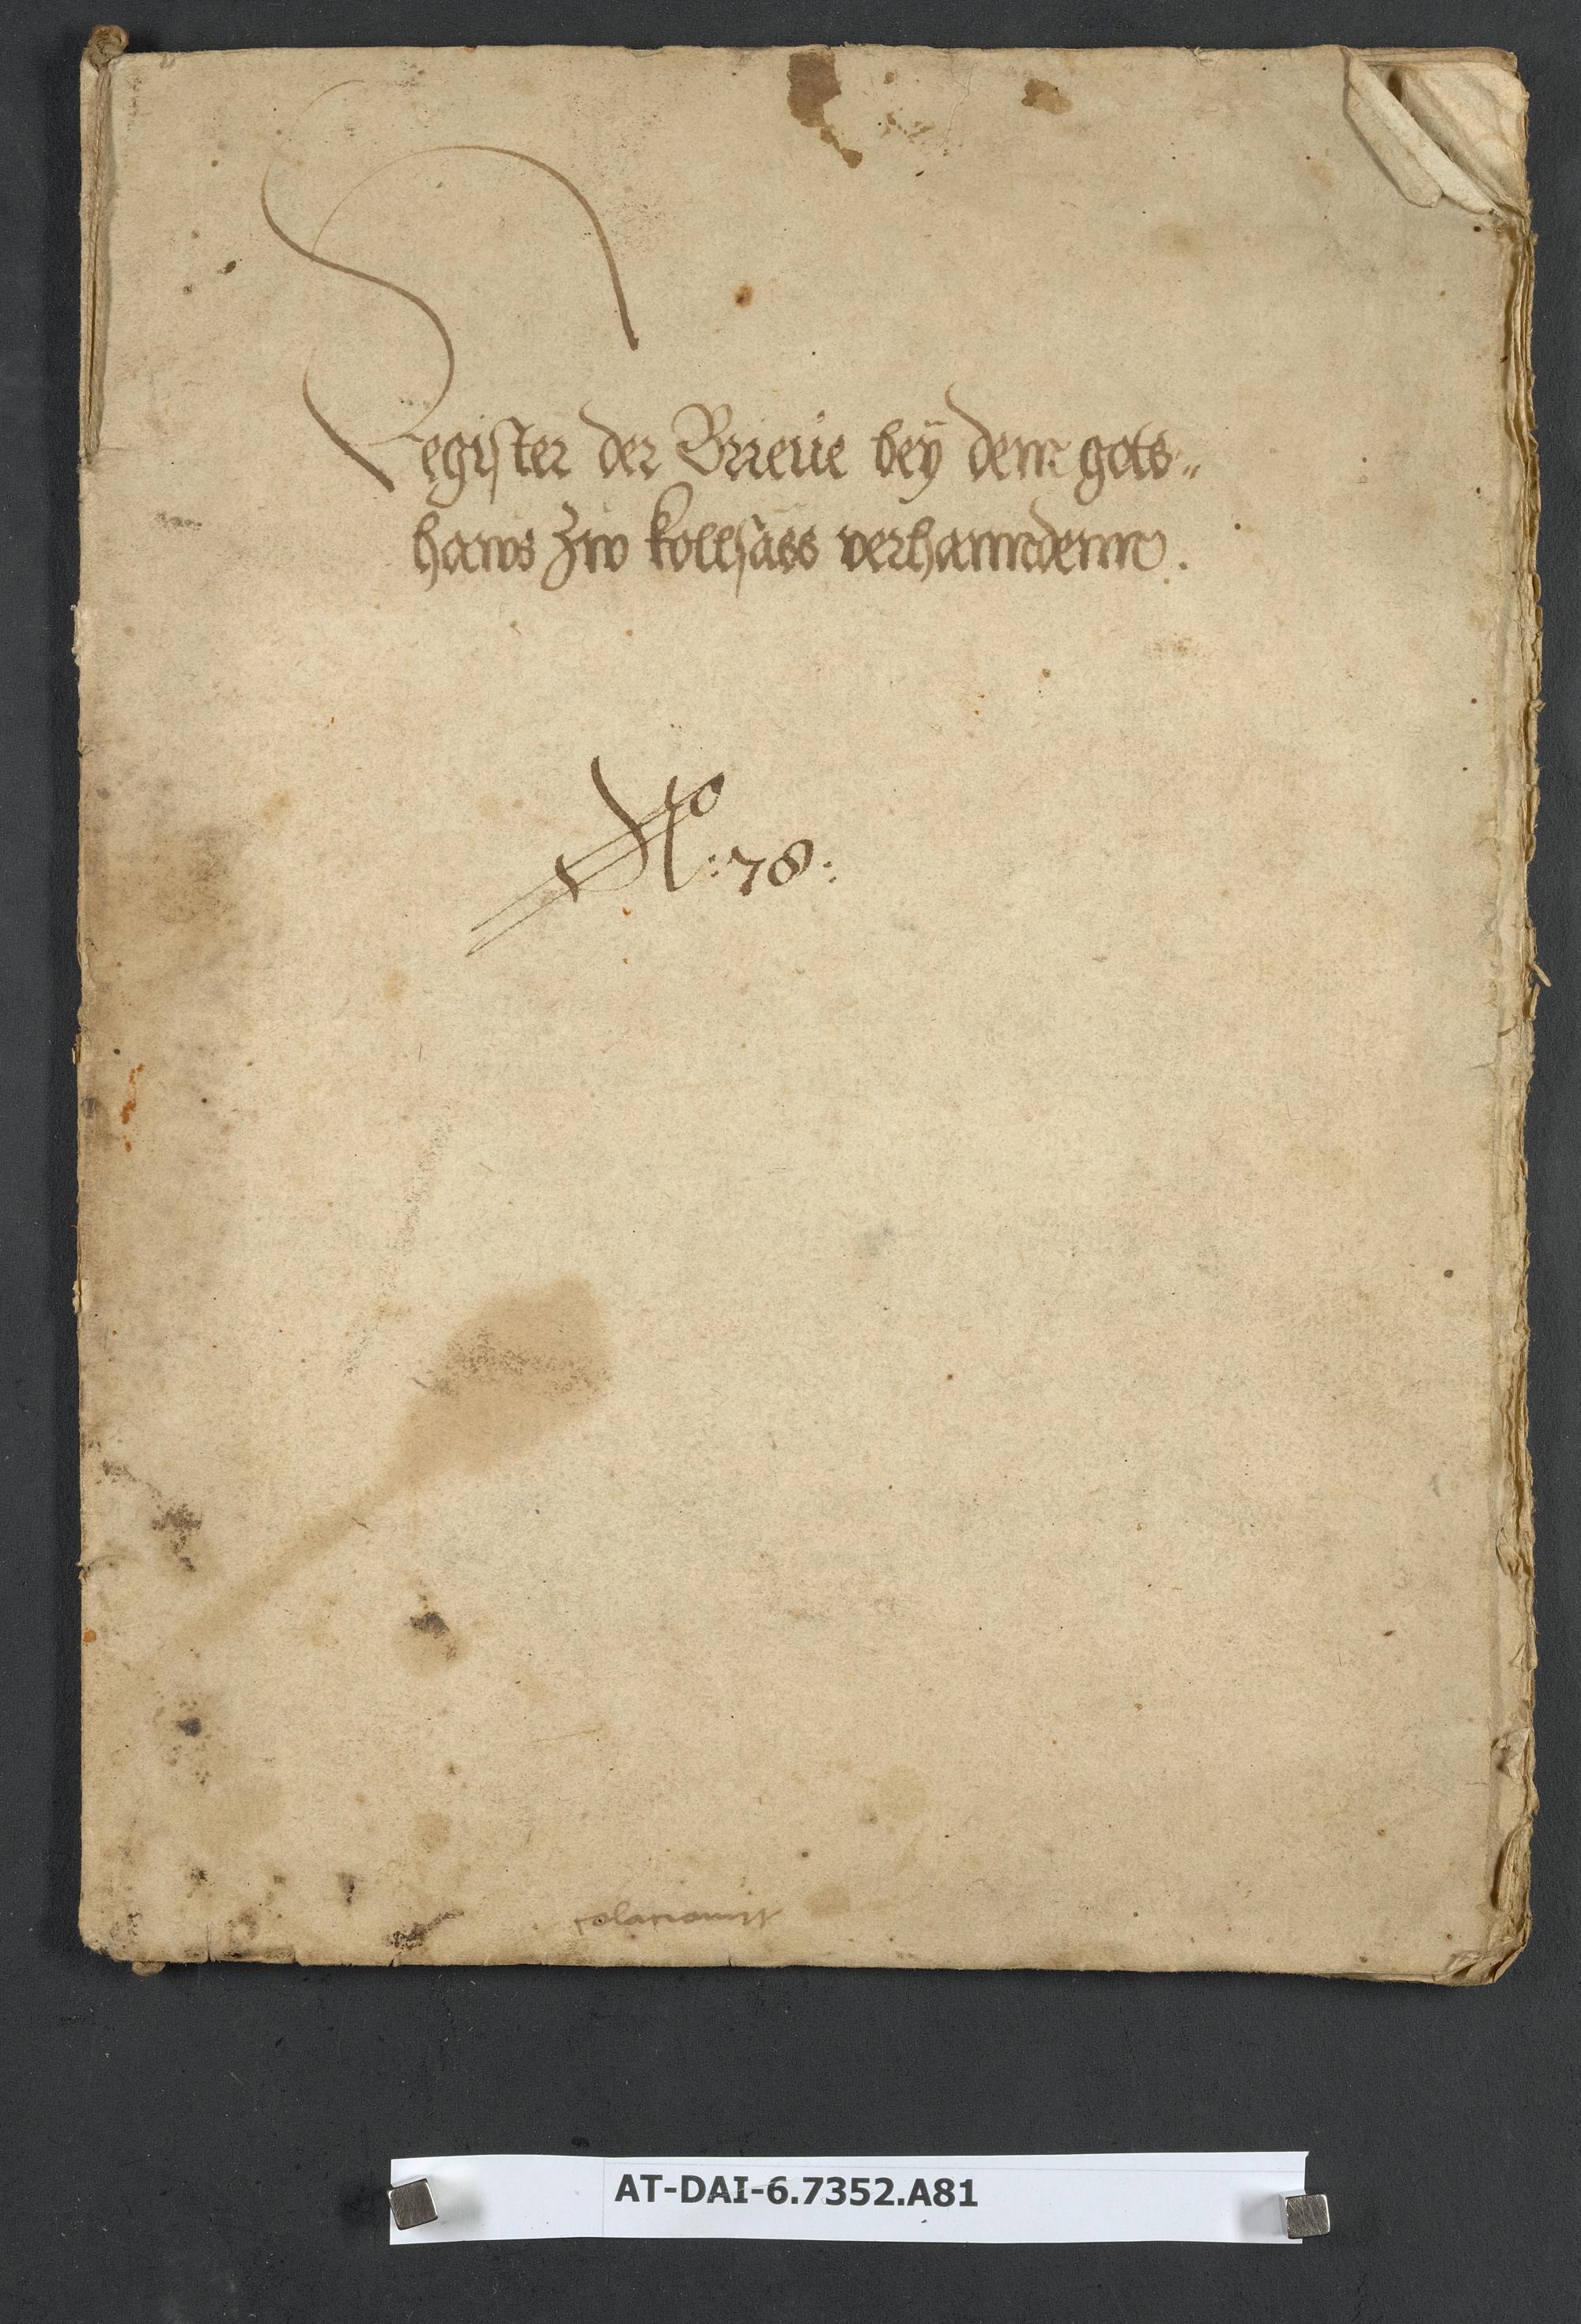 Register der Brieue bey dem gots„
haws Zw kollsäss verhanndenn.
No :78:
AT-DAI-6.7352.A81